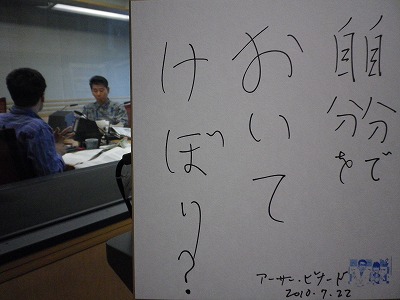 自分で
自分を
おいて
けぼり？
アーサー・ビナード
2010.7.22